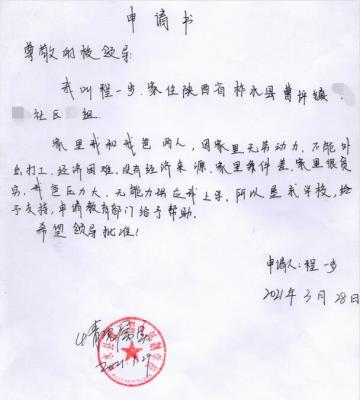 申请书
尊敬的校领导:
我叫程一步.家住陕西省柞水县曹坪镇.
社区 组.
家里我和我爸两人,因家里无劳动力,不能外
出打工.经济困难,没有经济来源.家里条件差.家里很贫
穷,我爸压力大,无能力供应我上学,所以恳求学校,给
予支持,申请教育部门给予帮助.
希望领导批准!
申请人:程一步
2021年3月28日
情况属实
2021.3.29